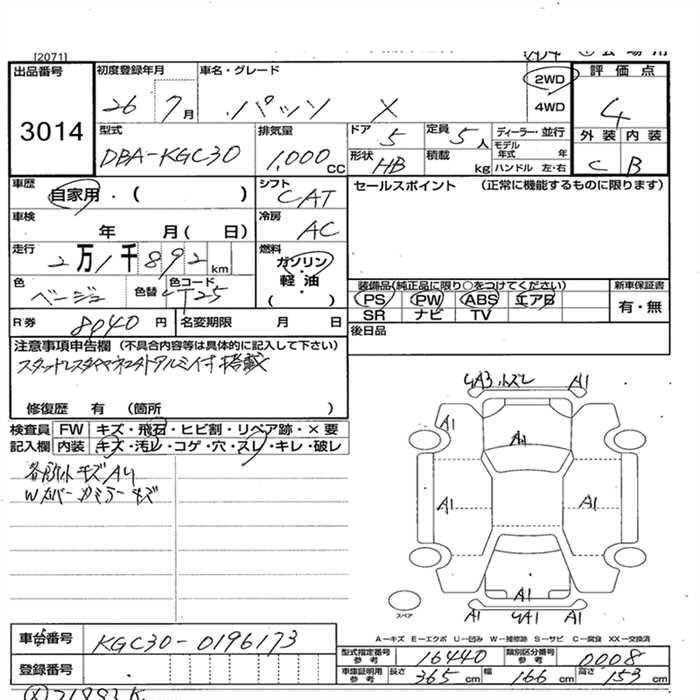 [2071]
出品番号 初度登録年月 車名・グレード 2WD 評価点
3014 26 7月 パッソ X 4WD 4
型式 排気量 ドア 定員 ディーラー・並行 外装 内装
DBA-KGC30 1,000 CC 5 5人 モデル年式 年 C B
形状 HB 積載 kg ハンドル 左・右
車歴 自家用・( ) シフト CAT セールスポイント (正常に機能するものに限ります)
車検 年 月( 日) 冷房 AC
走行 2万1千892km 燃料 ガソリン・軽油 ( )
色 ベージュ 色替 色コード T25
装備品(純正品に限り○をつけてください) 新車保証書
PS PW ABS エアB 有・無
SR ナビ TV
R券 8040円 名変期限 月 日 後日品
注意事項申告欄 (不具合内容等は具体的に記入して下さい)
スタッドレスタイヤ アルミ付 搭載
修復歴 有 (箇所 )
検査員 FW キズ・飛石・ヒビ割・リペア跡・×要
記入欄 内装 キズ・汚レ・コゲ・穴・スレ・キレ・破レ
キズA4
Wカバー ミラーキズ
4A3 A1
A1 A1
A1 A1
A1
A1 4A1 A1
スペア
A-キズ E-エクボ U-凹み W-補修跡 S-サビ C-腐食 XX-交換済
車台番号 KGC30-0196173
型式指定番号 参考 16440 類別区分番号 参考 0008
登録番号
車庫証明用 参考 長さ 365cm 幅 166cm 高さ 153cm